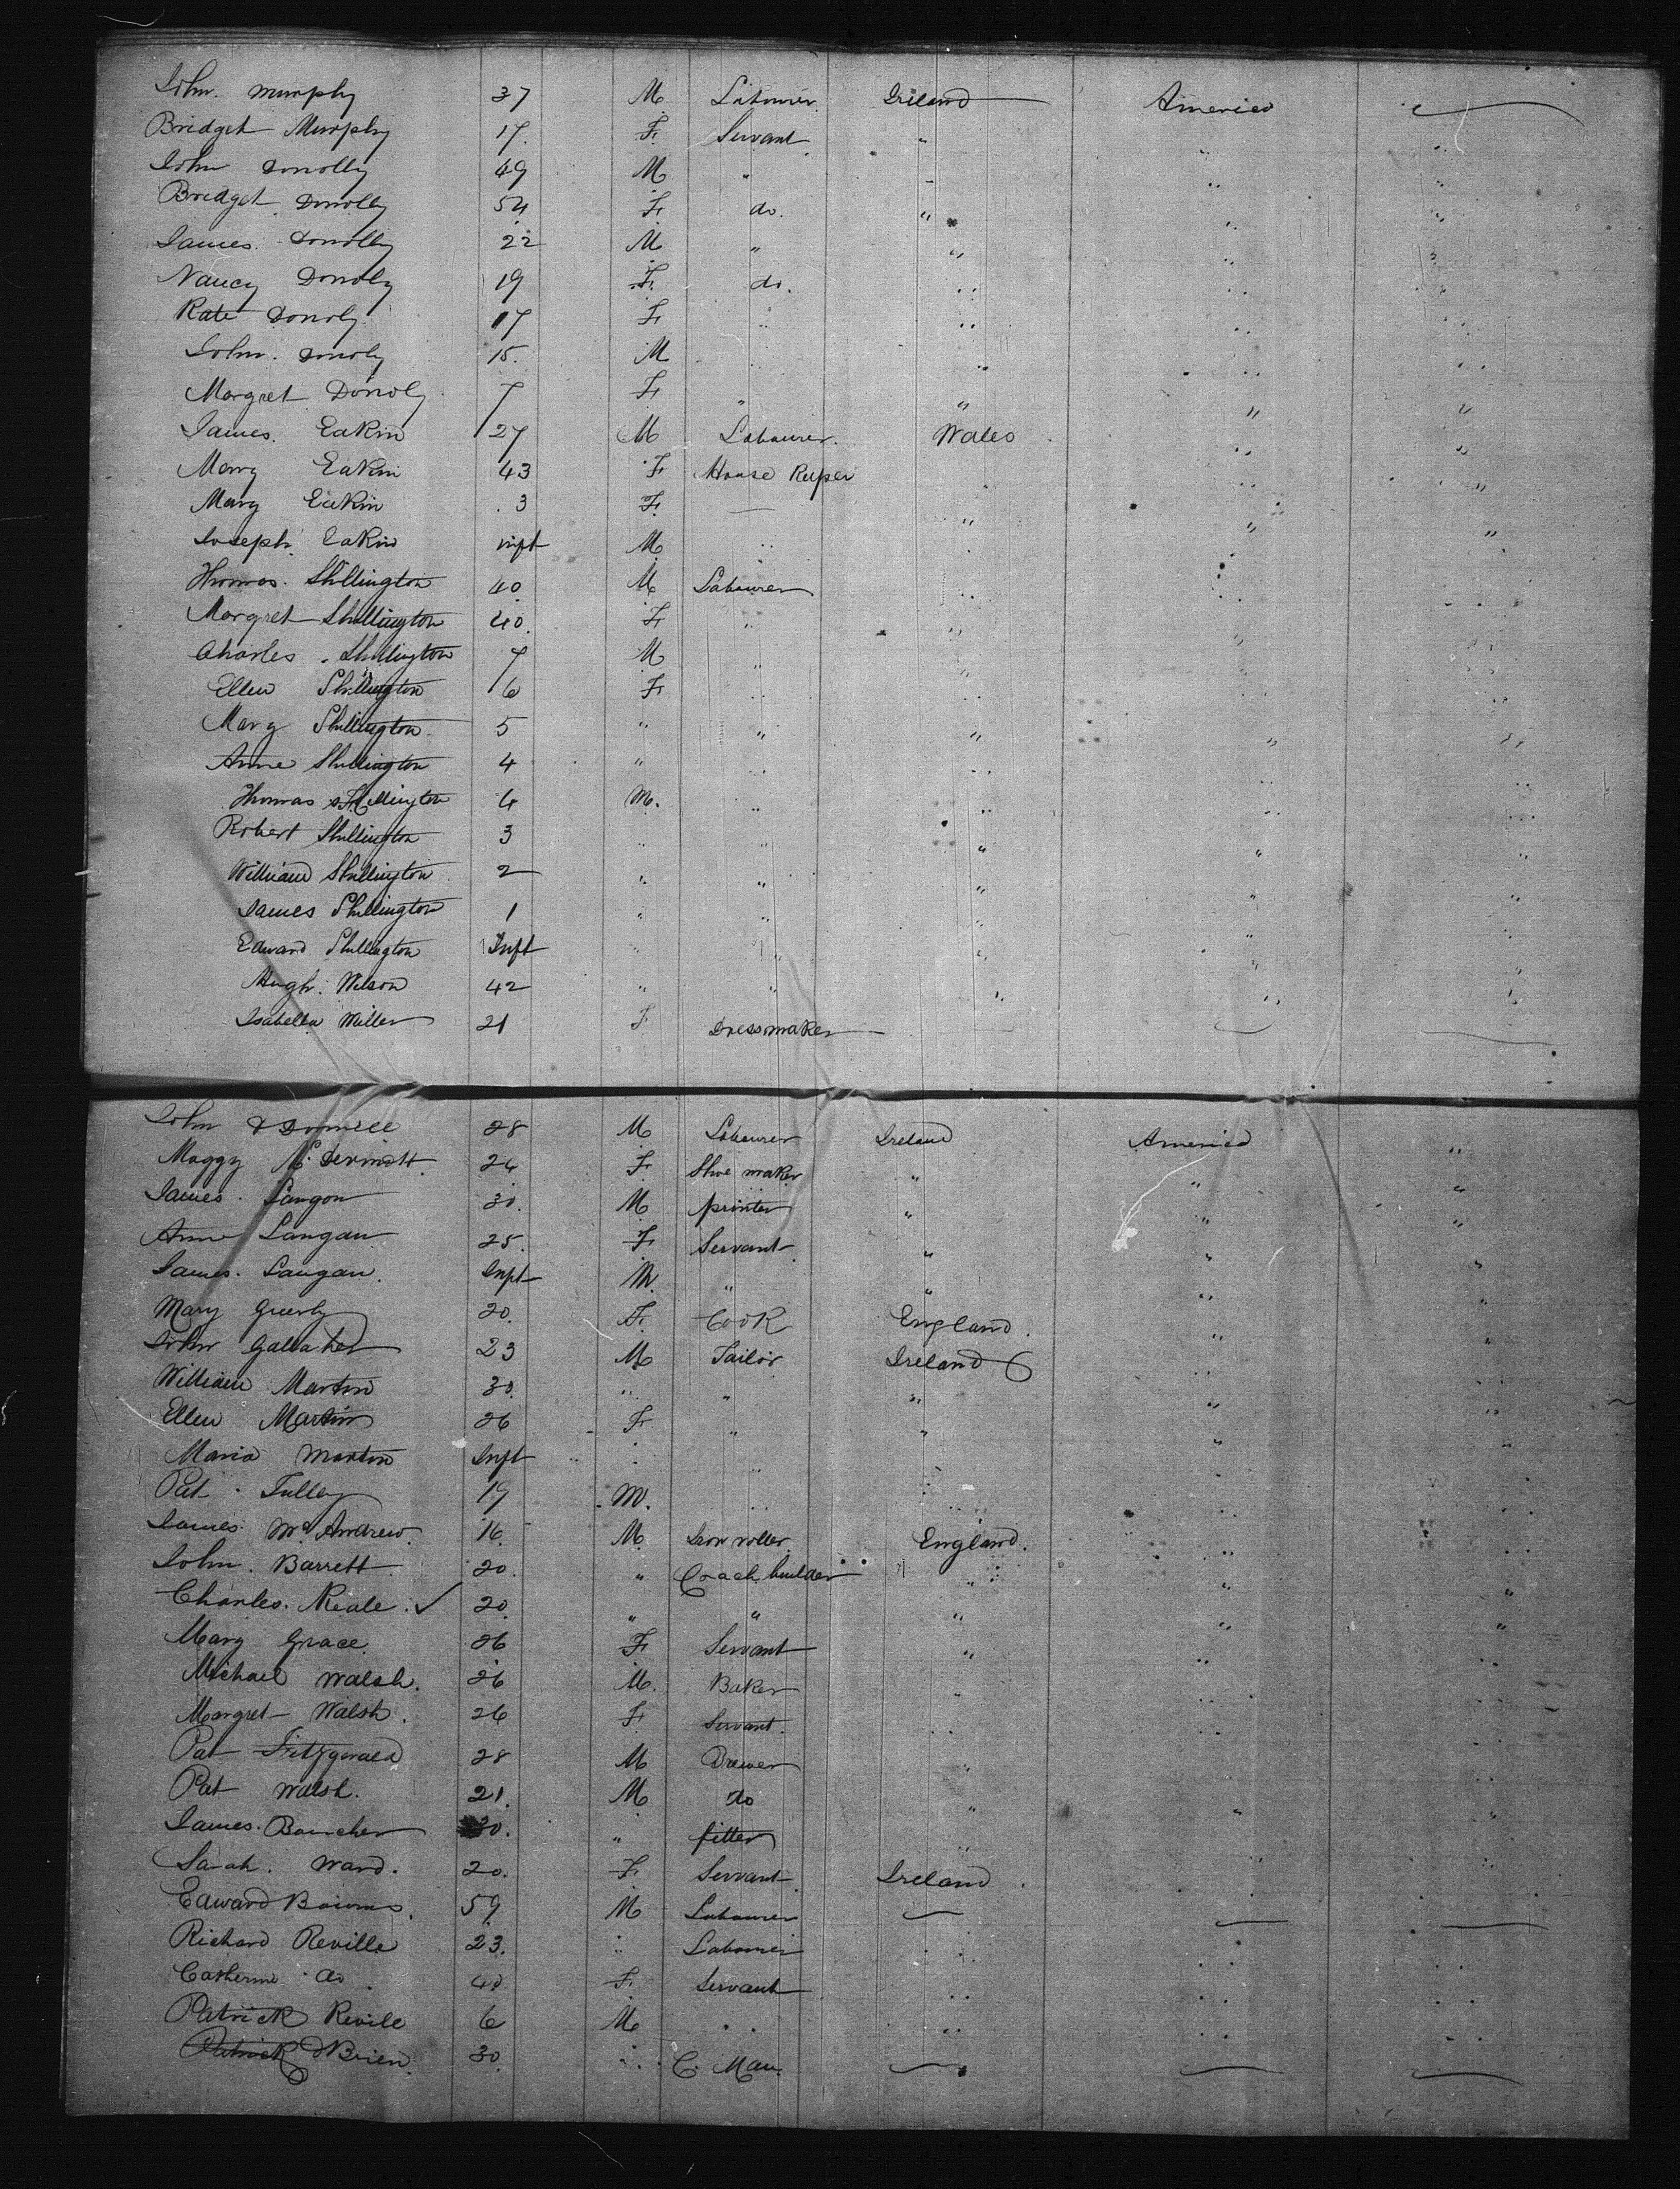 John. Murphy 37 M Labourer Ireland America
Bridget Murphy 17. F. Servant "
John Donolly 49 M "
Bridget Donolly 54 F. do. "
James. Donolly 22 M " "
Nancy Donoly 19 F. do. "
Kate Donoly 17 F. " "
John. Donoly 15. M " "
Margret Donoly 7 F. " " " "
James. Eakin 27 M Labourer. Wales " "
Mary Eakin 43 F House Keeper " "
Mary Eakin 3 F. — " " "
Joseph. Eakin inft M "
Thomas. Shillington 40 M Labourer "
Margret Shillington 40. F. " " "
Charles. Shillington 7 M " "
Ellen Shillington 6 F. " "
Mary Shillington 5 " " " " "
Anne Shillington 4 " " "
Thomas Shillington 4 M. " "
Robert Shillington 3 " " " " "
William Shillington 2 " " " " "
James Shillington 1 " " " " "
Edward Shillington Inft " " " " "
Hugh. Wilson 42 " " " " "
Isabella Miller 21 F Dressmaker —
John O Donnell 28 M Labourer Ireland America "
Maggy Mc Dermott 24 F. Shoe maker " " "
James. Langon 30. M printer " " "
Anne Langan 25. F Servant " " "
James. Langan. Inft M. " " " "
Mary 20. F. Cook England. "
John Gallaher 23 M Tailor Ireland "
William Martin 30. " " " " "
Ellen Martin 26 F. " " " "
Maria Martin Inft " " "
Pat. Tulley 19 M. " "
James. Mc Andrew. 16. M. Iron roller England. "
John. Barrett 20. " Coach builder " " "
Charles. Neale. ✓ 20. " " " " "
Mary Grace 26 F. Servant " "
Michael Walsh. 26 M. Baker " "
Margret Walsh. 26 F. Servant. " "
Pat Fitzgerald 28 M Brewer " "
Pat Walsh. 21. M do " " "
James. Boucher 30. " fitter "
Sarah. Ward. 20. F. Servant Ireland.
Edward 59. M Labourer —
Richard Reville 23. " Labourer "
Catherine do 40 F. Servant "
Patrick Revile 6 M " "
Patrick O Brien. 30. " C. Man. —